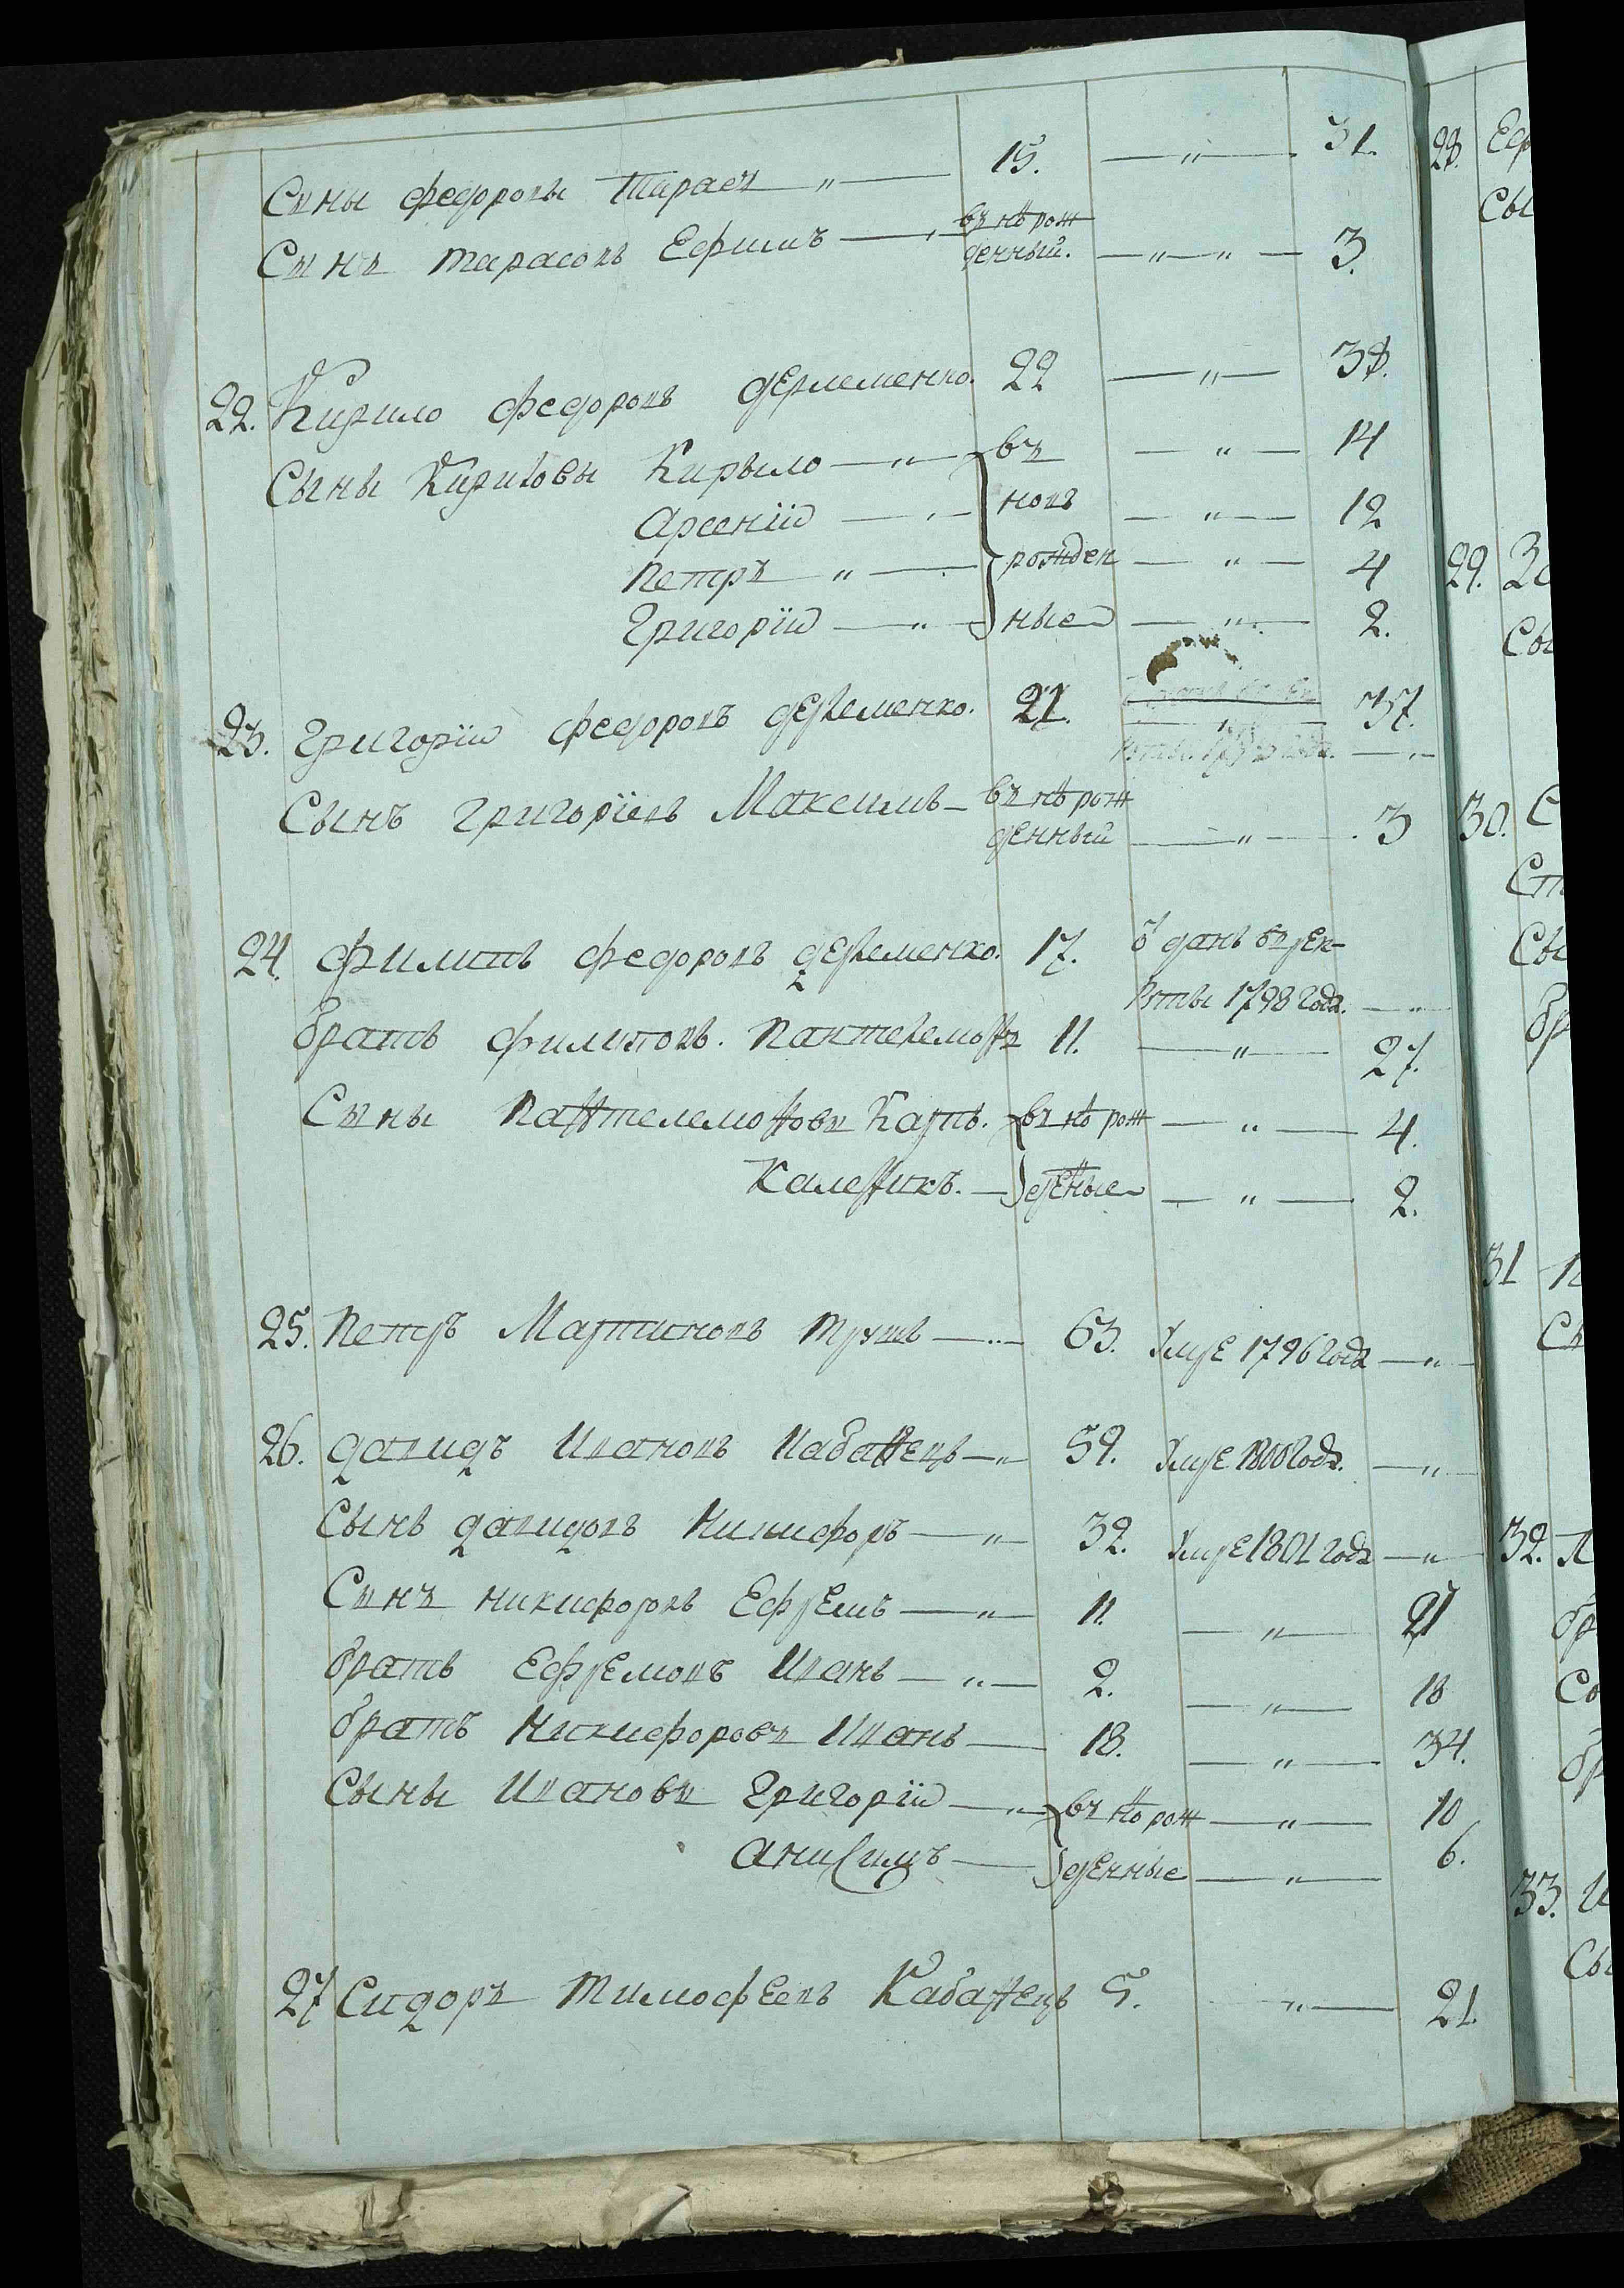 Сыны федоровы Тарасъ — " — 15. — " — 31.
Сынъ тарасовъ Ефимъ — " — вн҃ѣ рож
денный. — " — " — 3.
22. Кирило федоровъ дерлеменко. 22 — " — 38.
Сыны Кириловы Кирыло — " — въ — " — 14
Арсенїй — " — новъ — " — 12
Петръ — " — рожден — " — 4
Григорїй — " — ные — " — 2.
23. Григорїй федоровъ дерлеменко. 21. — " — 37.
Сынъ григорїевъ Максимъ — вн҃ѣ рож
денный — " — 3
24. филипъ федоровъ дерлеменко. 17. ѿданъ въ рек-
руты 1798 года. — " —
братъ филиповъ. Пантелемонъ 11. — " — 27.
Сыны Пантелемоновы Карпъ. вн҃ѣ рож — " — 4.
Каленикъ. — денные — " — 2.
25. Петръ Мартиновъ трушъ — " — 63. Умре 1796 года — " —
26. давидъ Ивановъ Кабанецъ — " — 59. Умре 1800 года. — " —
Сынъ давидовъ Никифоръ — " — 32. Умре 1801 года — " —
Сынъ никифоровъ Ефремъ — " — 11. — " — 27
братъ Ефремовъ Иванъ — " — 2. — " — 18
братъ Никифоровъ Иванъ — 18. — " — 34.
Сыны Ивановы Григорїй — " — вн҃ѣ рож — " — 10
анисимъ — денные — " — 6.
27 Сидоръ тимофеевъ Кабанецъ 5. — " — 21.
28. Еф
Сы
29.
Сы
30. С
Сы
бр
31
Сы
32. Л
бр
33. И
Сы